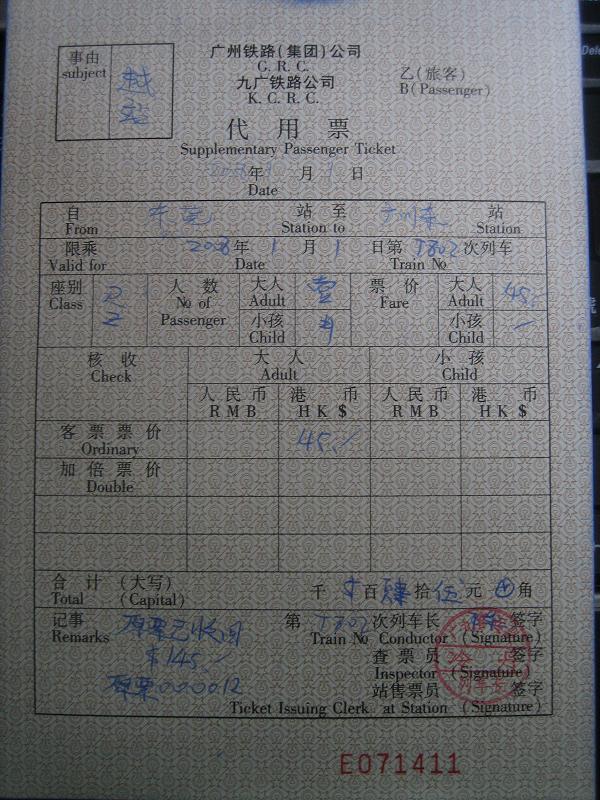 广州铁路(集团)公司
G. R. C.
九广铁路公司
K. C. R. C.
事由
subject
越
站
乙(旅客)
B(Passenger)
代用票
Supplementary Passenger Ticket
年 月 1 日
Date
自 东莞 站至 广州东 站
From Station to Station
限乘 2008年 1 月 1 日第 T802 次列车
Valid for Date Train №
座别 人数 大人 壹 票价 大人 45.
Class № of Adult Fare Adult
Passenger 小孩 小孩
Child Child
核收 大人 小孩
Check Adult Child
人民币 港币 人民币 港币
RMB HK$ RMB HK$
客票票价 45.
Ordinary
加倍票价
Double
合计 (大写) 千 百 肆 拾 伍 元 角
Total (Capital)
记事 第 T802 次列车长 签字
Remarks Train № Conductor (Signature)
原票已收回
$145.
原票000012
查票员 签字
Inspector (Signature)
站售票员 签字
Ticket Issuing Clerk at Station (Signature)
E071411